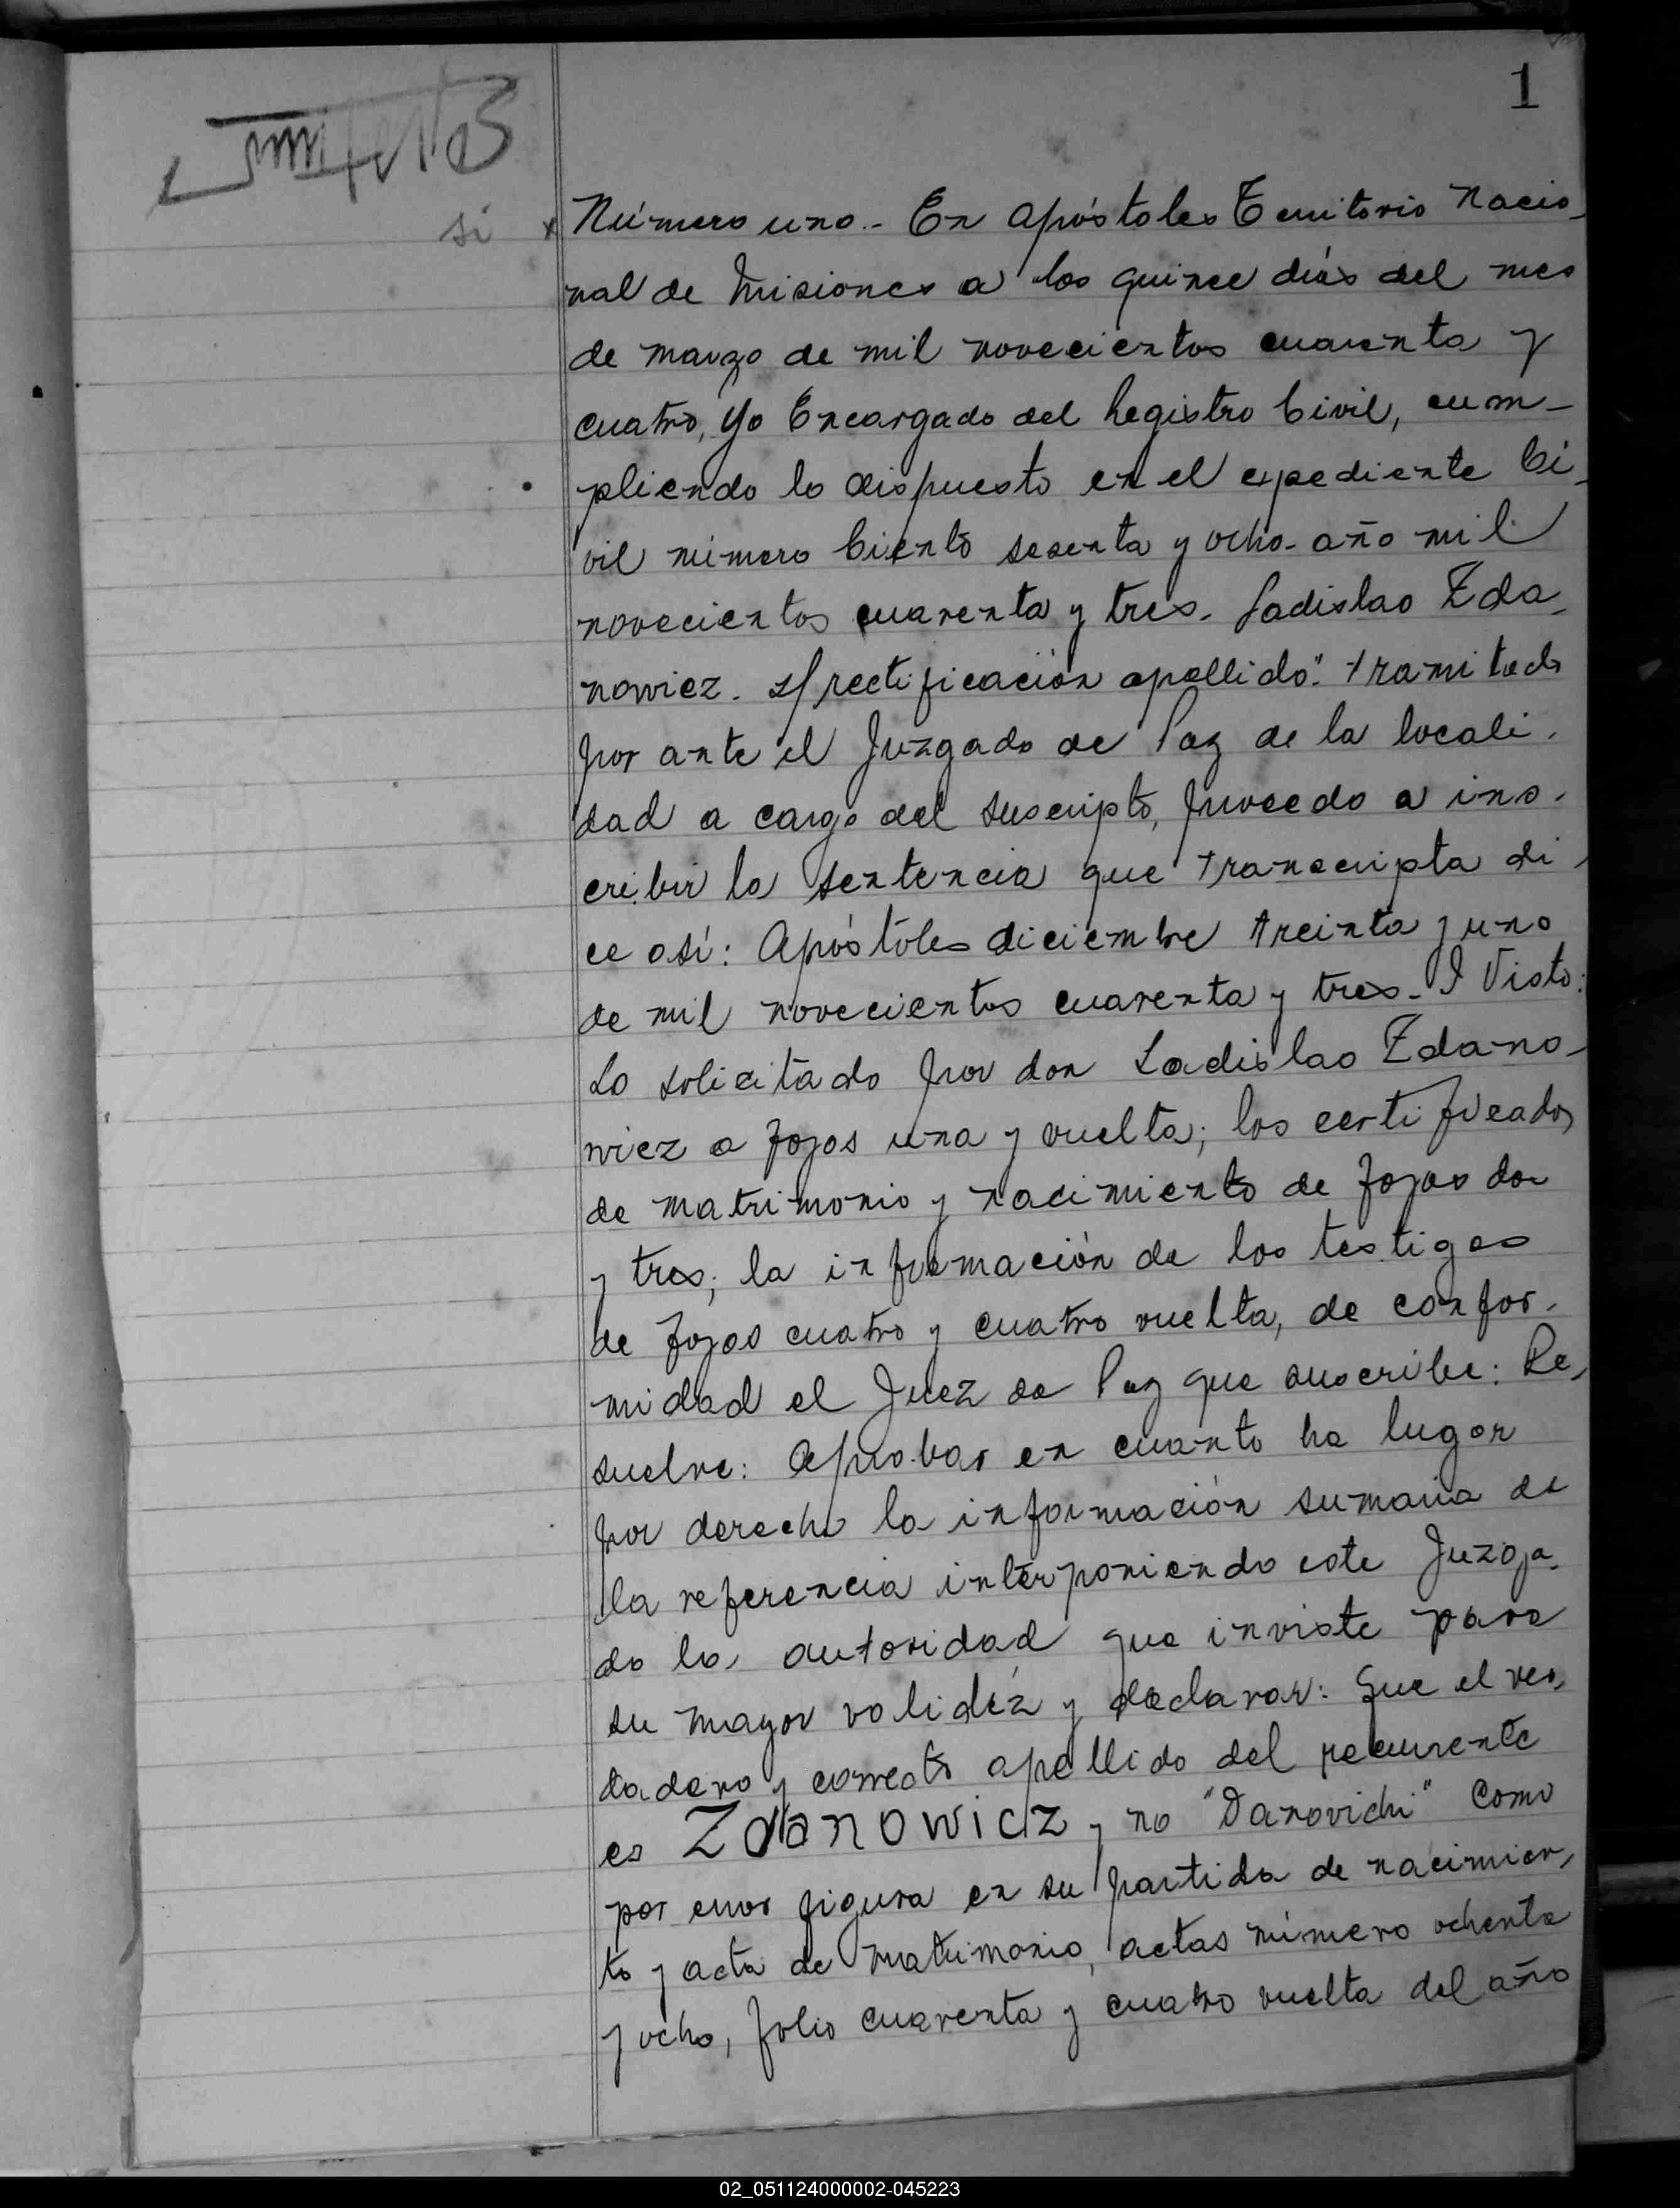 1
si x Número uno.- En Apóstoles Territorio Nacio-
nal de Misiones a los quince días del mes
de marzo de mil novecientos cuarenta y
cuatro, Yo Encargado del Registro Civil, cum-
pliendo lo dispuesto en el expediente Ci-
vil número Ciento sesenta y ocho- año mil
novecientos cuarenta y tres. Ladislao Zda-
nowicz. s/rectificación apellido". tramitado
por ante el Juzgado de Paz de la locali-
dad a cargo del suscripto, procedo a ins-
cribir la sentencia que transcripta di-
ce así: Apóstoles diciembre treinta y uno
de mil novecientos cuarenta y tres.- Y Visto:
Lo solicitado por don Ladislao Zdano-
wicz a fojas una y vuelta; los certificados
de matrimonio y nacimiento de fojas dos
y tres; la información de los testigos
de fojas cuatro y cuatro vuelta, de confor-
midad el Juez de Paz que suscribe: Re-
suelve: Aprobar en cuanto ha lugar
por derecho la información sumaria de
la referencia interponiendo este Juzga-
do la autoridad que inviste para
su mayor validéz y declarar: Que el ver-
dadero y correcto apellido del recurrente
es Zdanowicz y no "Danovichi" como
por error figura en su partida de nacimien-
to y acta de matrimonio, actas número ochenta
y ocho, folio cuarenta y cuatro vuelta del año
02_051124000002-045223